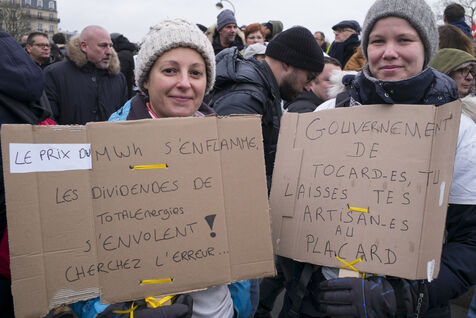 LE PRIX DU MWh S'ENFLAMME,
LES DIVIDENDES DE
TOTALEnergies
S'ENVOLENT!
CHERCHEZ L'ERREUR...
GOUVERNEMENT
DE
TOCARD-ES, TU
LAISSES TES
ARTISAN-ES
AU
PLACARD